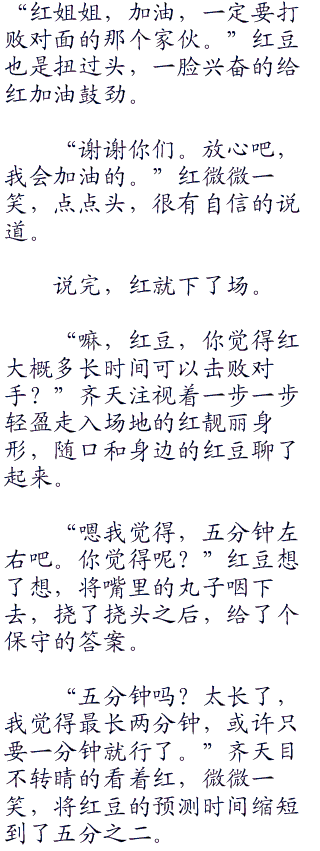 “红姐姐，加油，一定要打
败对面的那个家伙。”红豆
也是扭过头，一脸兴奋的给
红加油鼓劲。
“谢谢你们。放心吧，
我会加油的。”红微微一
笑，点点头，很有自信的说
道。
说完，红就下了场。
“嘛，红豆，你觉得红
大概多长时间可以去败对
手？”齐天注视着一步一步
轻盈走入场地的红靓丽身
形，随口和身边的红豆聊了
起来。
“嗯我觉得，五分钟左
右吧。你觉得呢？”红豆想
了想，将嘴里的丸子咽下
去，挠了挠头之后，给了个
保守的答案。
“五分钟吗？太长了，
我觉得最长两分钟，或许只
要一分钟就行了。”齐天目
不转睛的看着红，微微一
笑，将红豆的预测时间缩短
到了五分之二。